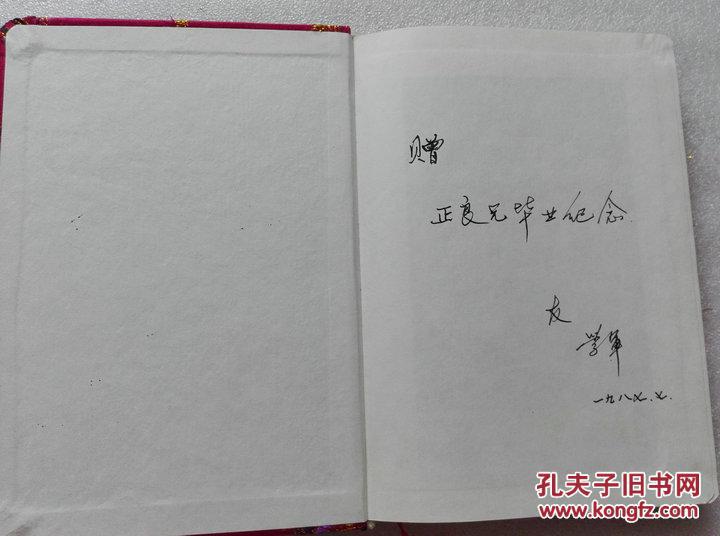 赠
正良兄毕业纪念.
友
学军
一九八七.七.
孔夫子旧书网
www.kongfz.com